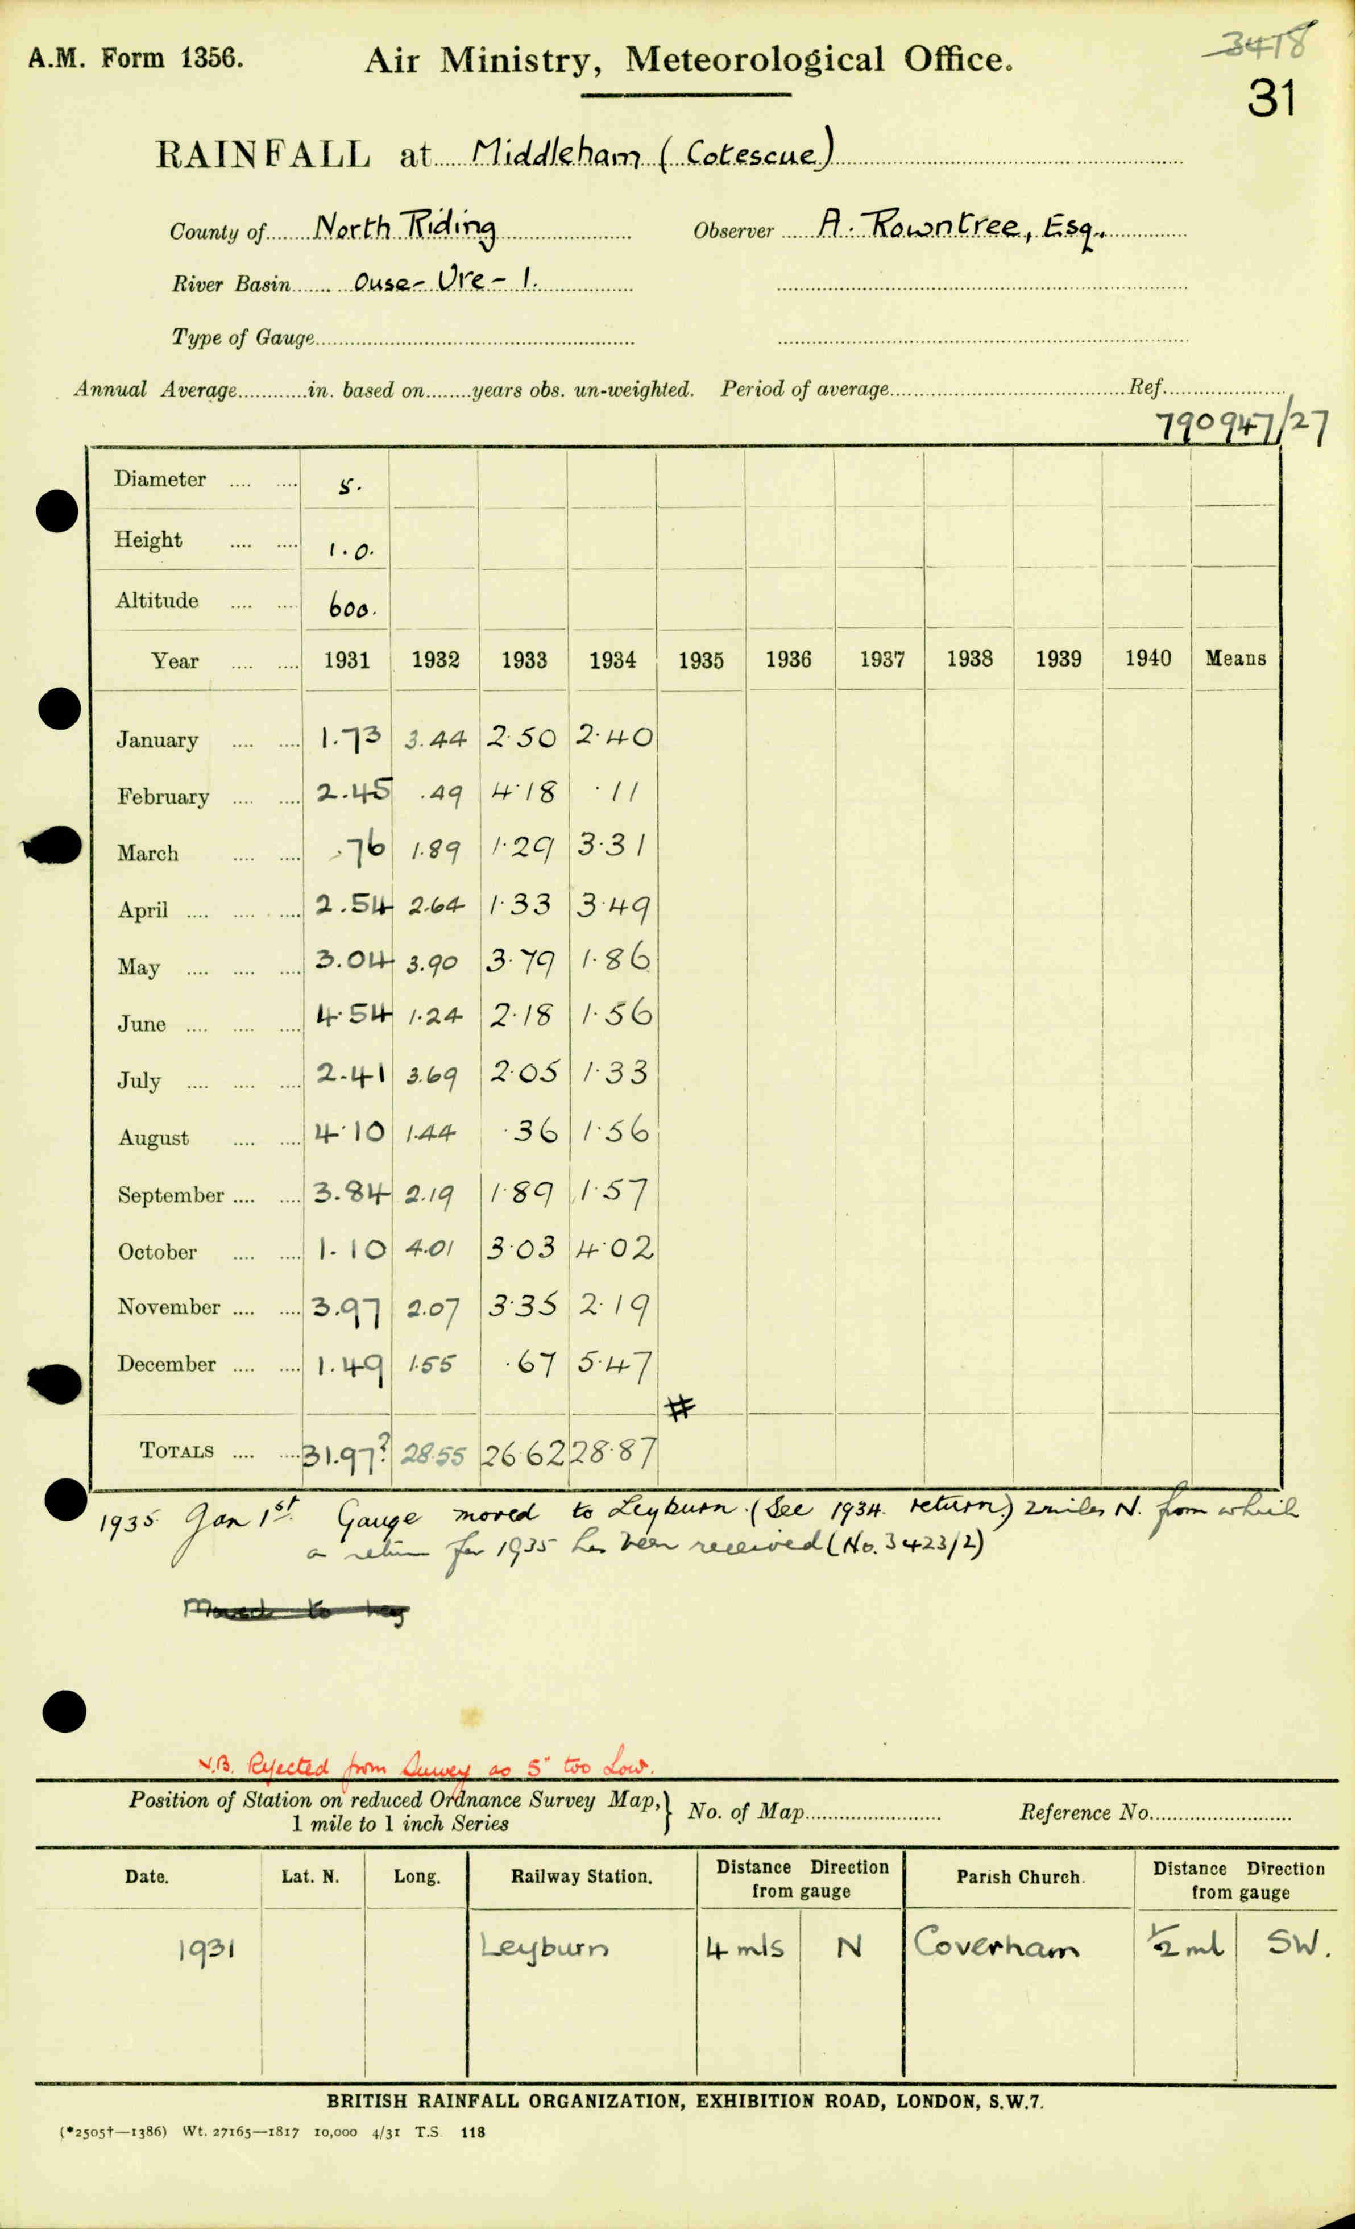 3478
A.M. Form 1356. Air Ministry, Meteorological Office.
31
RAINFALL at Middleham (Cotescue)
County of North Riding Observer A. Rowntree, Esq.
River Basin Ouse - Ure - 1.
Type of Gauge
Annual Average in. based on years obs. un-weighted. Period of average Ref.
790947/27
Diameter 5.
Height 1.0.
Altitude 600.
Year 1931 1932 1933 1934 1935 1936 1937 1938 1939 1940 Means
January 1.73 3.44 2.50 2.40
February 2.45 .49 4.18 .11
March .76 1.89 1.29 3.31
April 2.54 2.64 1.33 3.49
May 3.04 3.90 3.79 1.86
June 4.54 1.24 2.18 1.56
July 2.41 3.69 2.05 1.33
August 4.10 1.44 .36 1.56
September 3.84 2.19 1.89 1.57
October 1.10 4.01 3.03 4.02
November 3.97 2.07 3.35 2.19
December 1.49 1.55 .67 5.47
#
TOTALS 31.97? 28.55 26.62 28.87
1935 Jan 1st Gauge moved to Leyburn (See 1934 return) 2 miles N. from which
a return for 1935 has been received (No. 3423/2)
Moved to Ley
N.B. Rejected from Survey as 5" too Low.
Position of Station on reduced Ordnance Survey Map,} No. of Map Reference No.
1 mile to 1 inch Series
Date. Lat. N. Long. Railway Station. Distance Direction from gauge Parish Church. Distance Direction from gauge
1931 Leyburn 4 mls N Coverham 1/2 ml SW.
BRITISH RAINFALL ORGANIZATION, EXHIBITION ROAD, LONDON, S.W.7.
(*2505†—1386) Wt. 27165—1817 10,000 4/31 T.S. 118